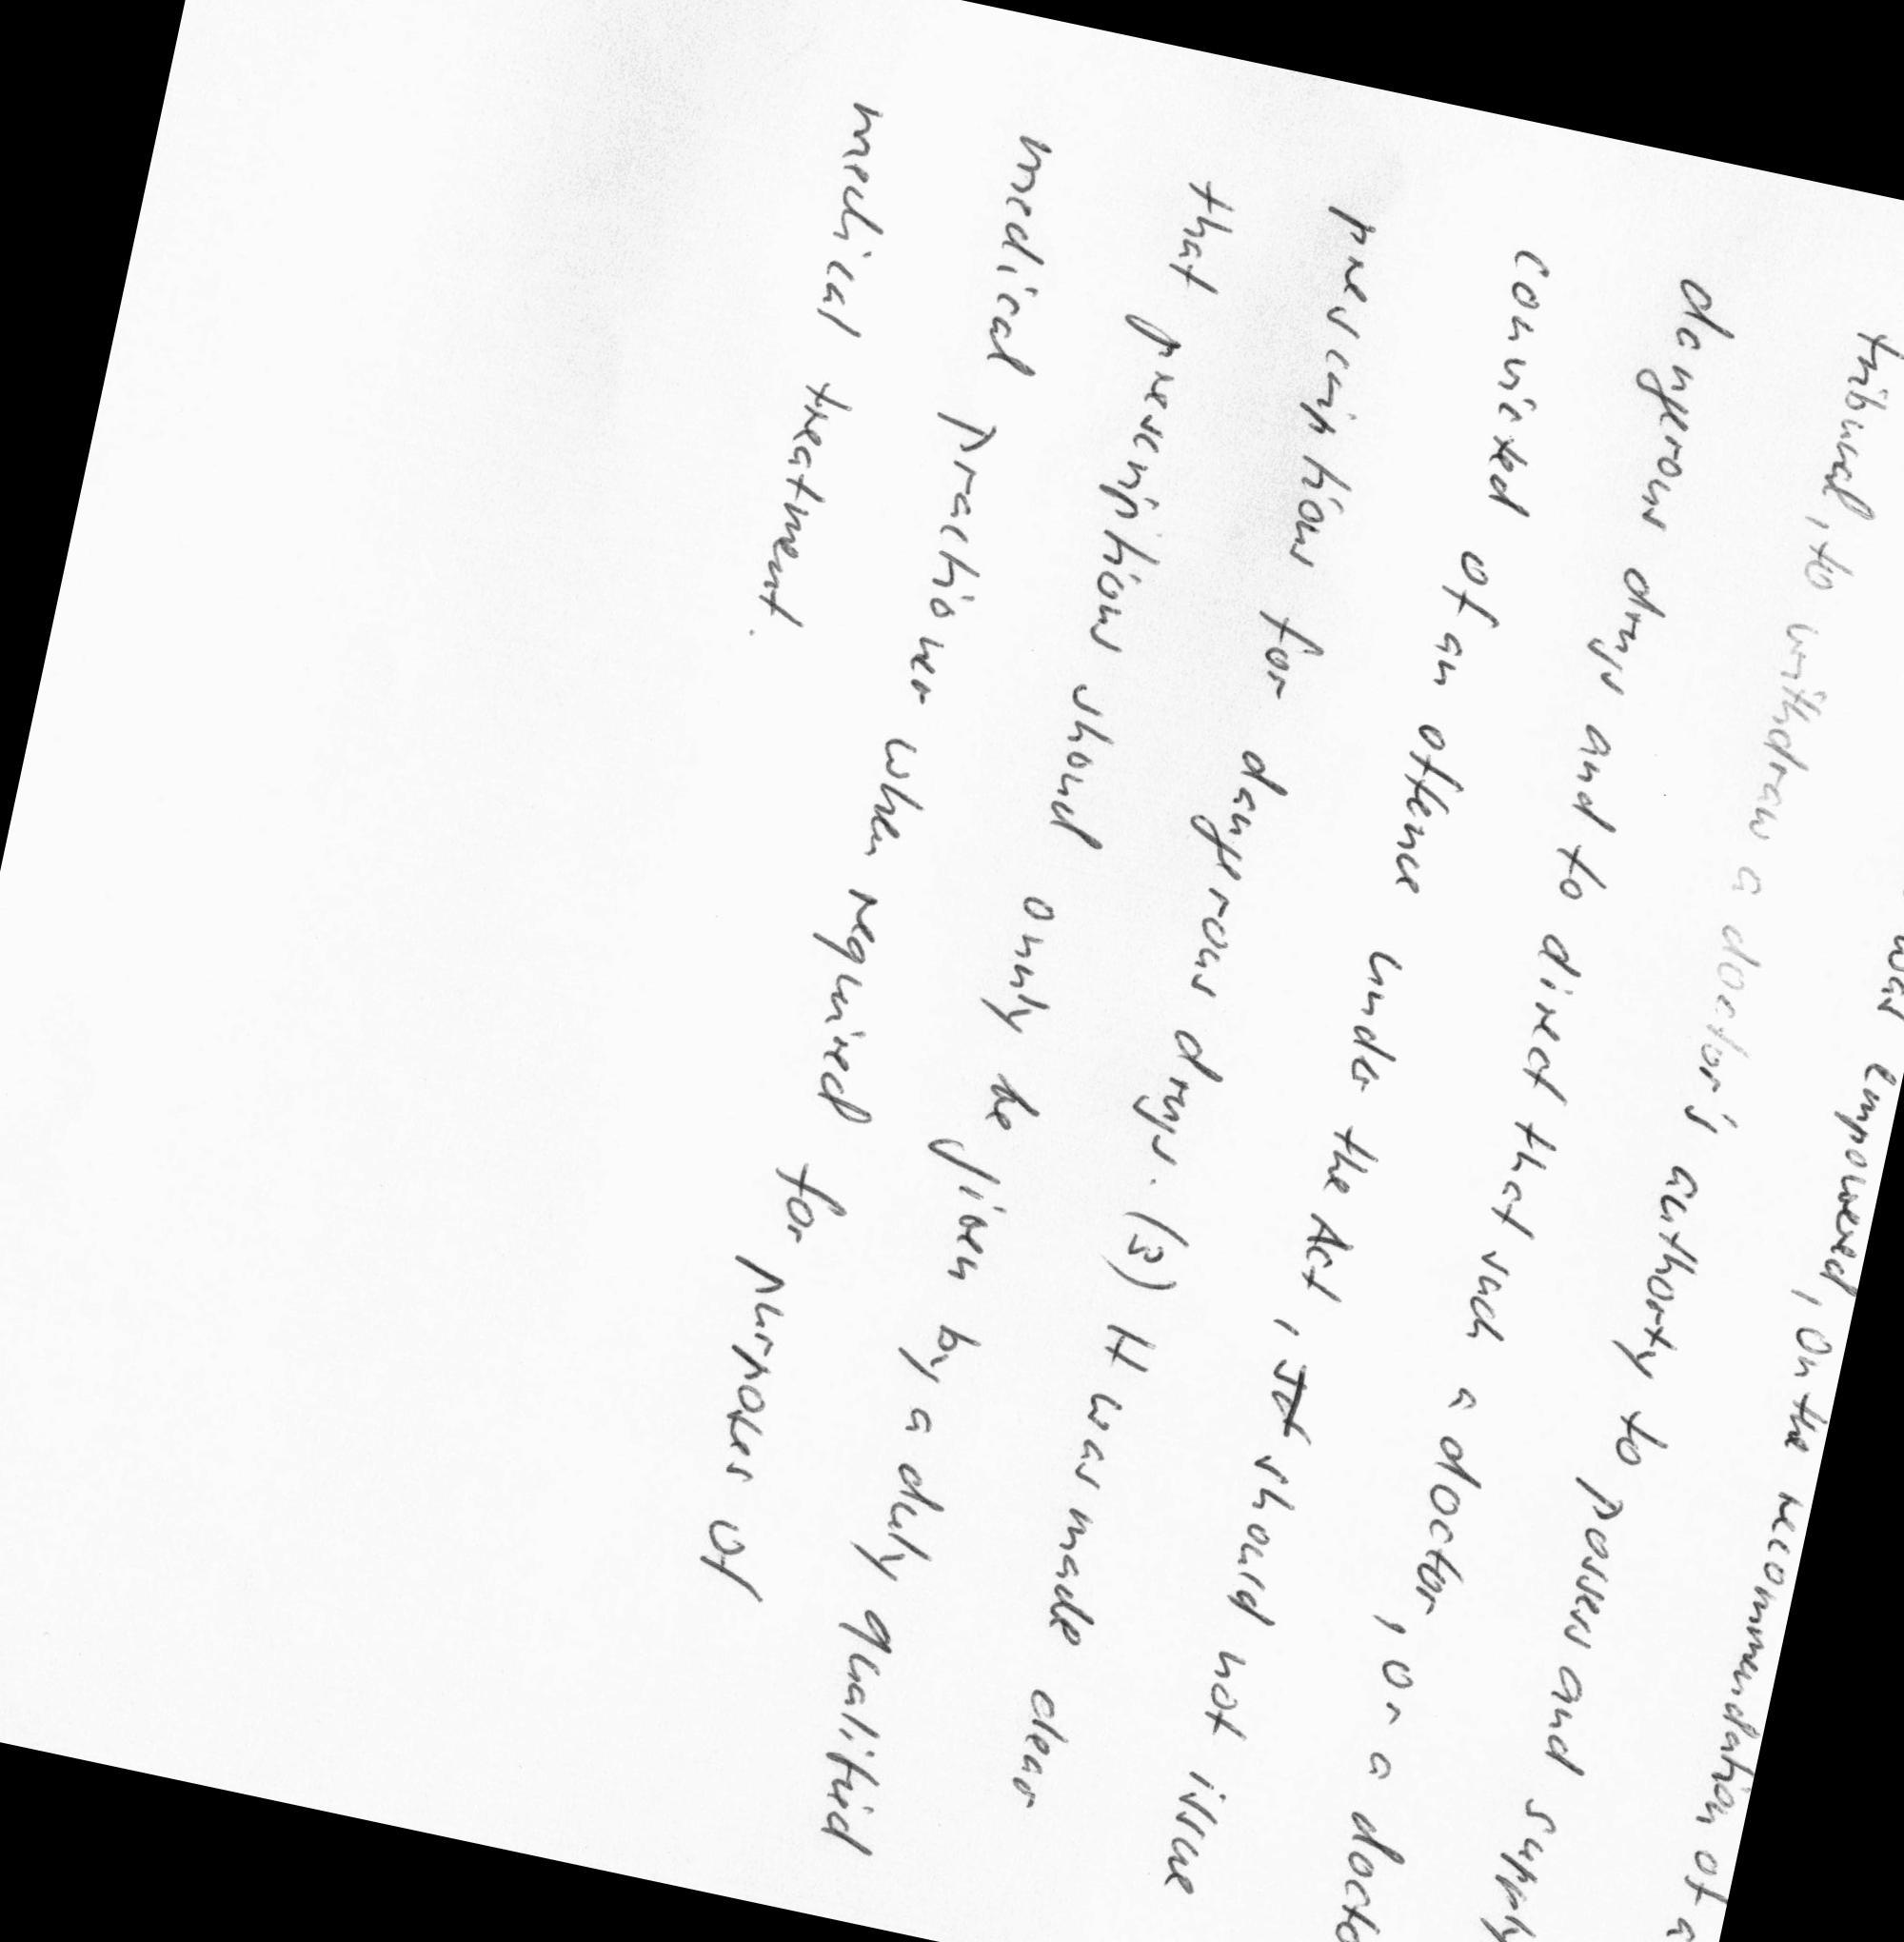 was empowered, on the recommendation of a
tribunal, to withdraw a doctor's authorty to
dangerous drugs and to direct that such a doctor, or a doctor
convicted of an offence under the Act, should not issue
prescriptions for dangerous drugs. (3) It was made clear
that prescriptions should onnly be given by a duly qualified
medical practioner when required for purposes of
medical treatment.